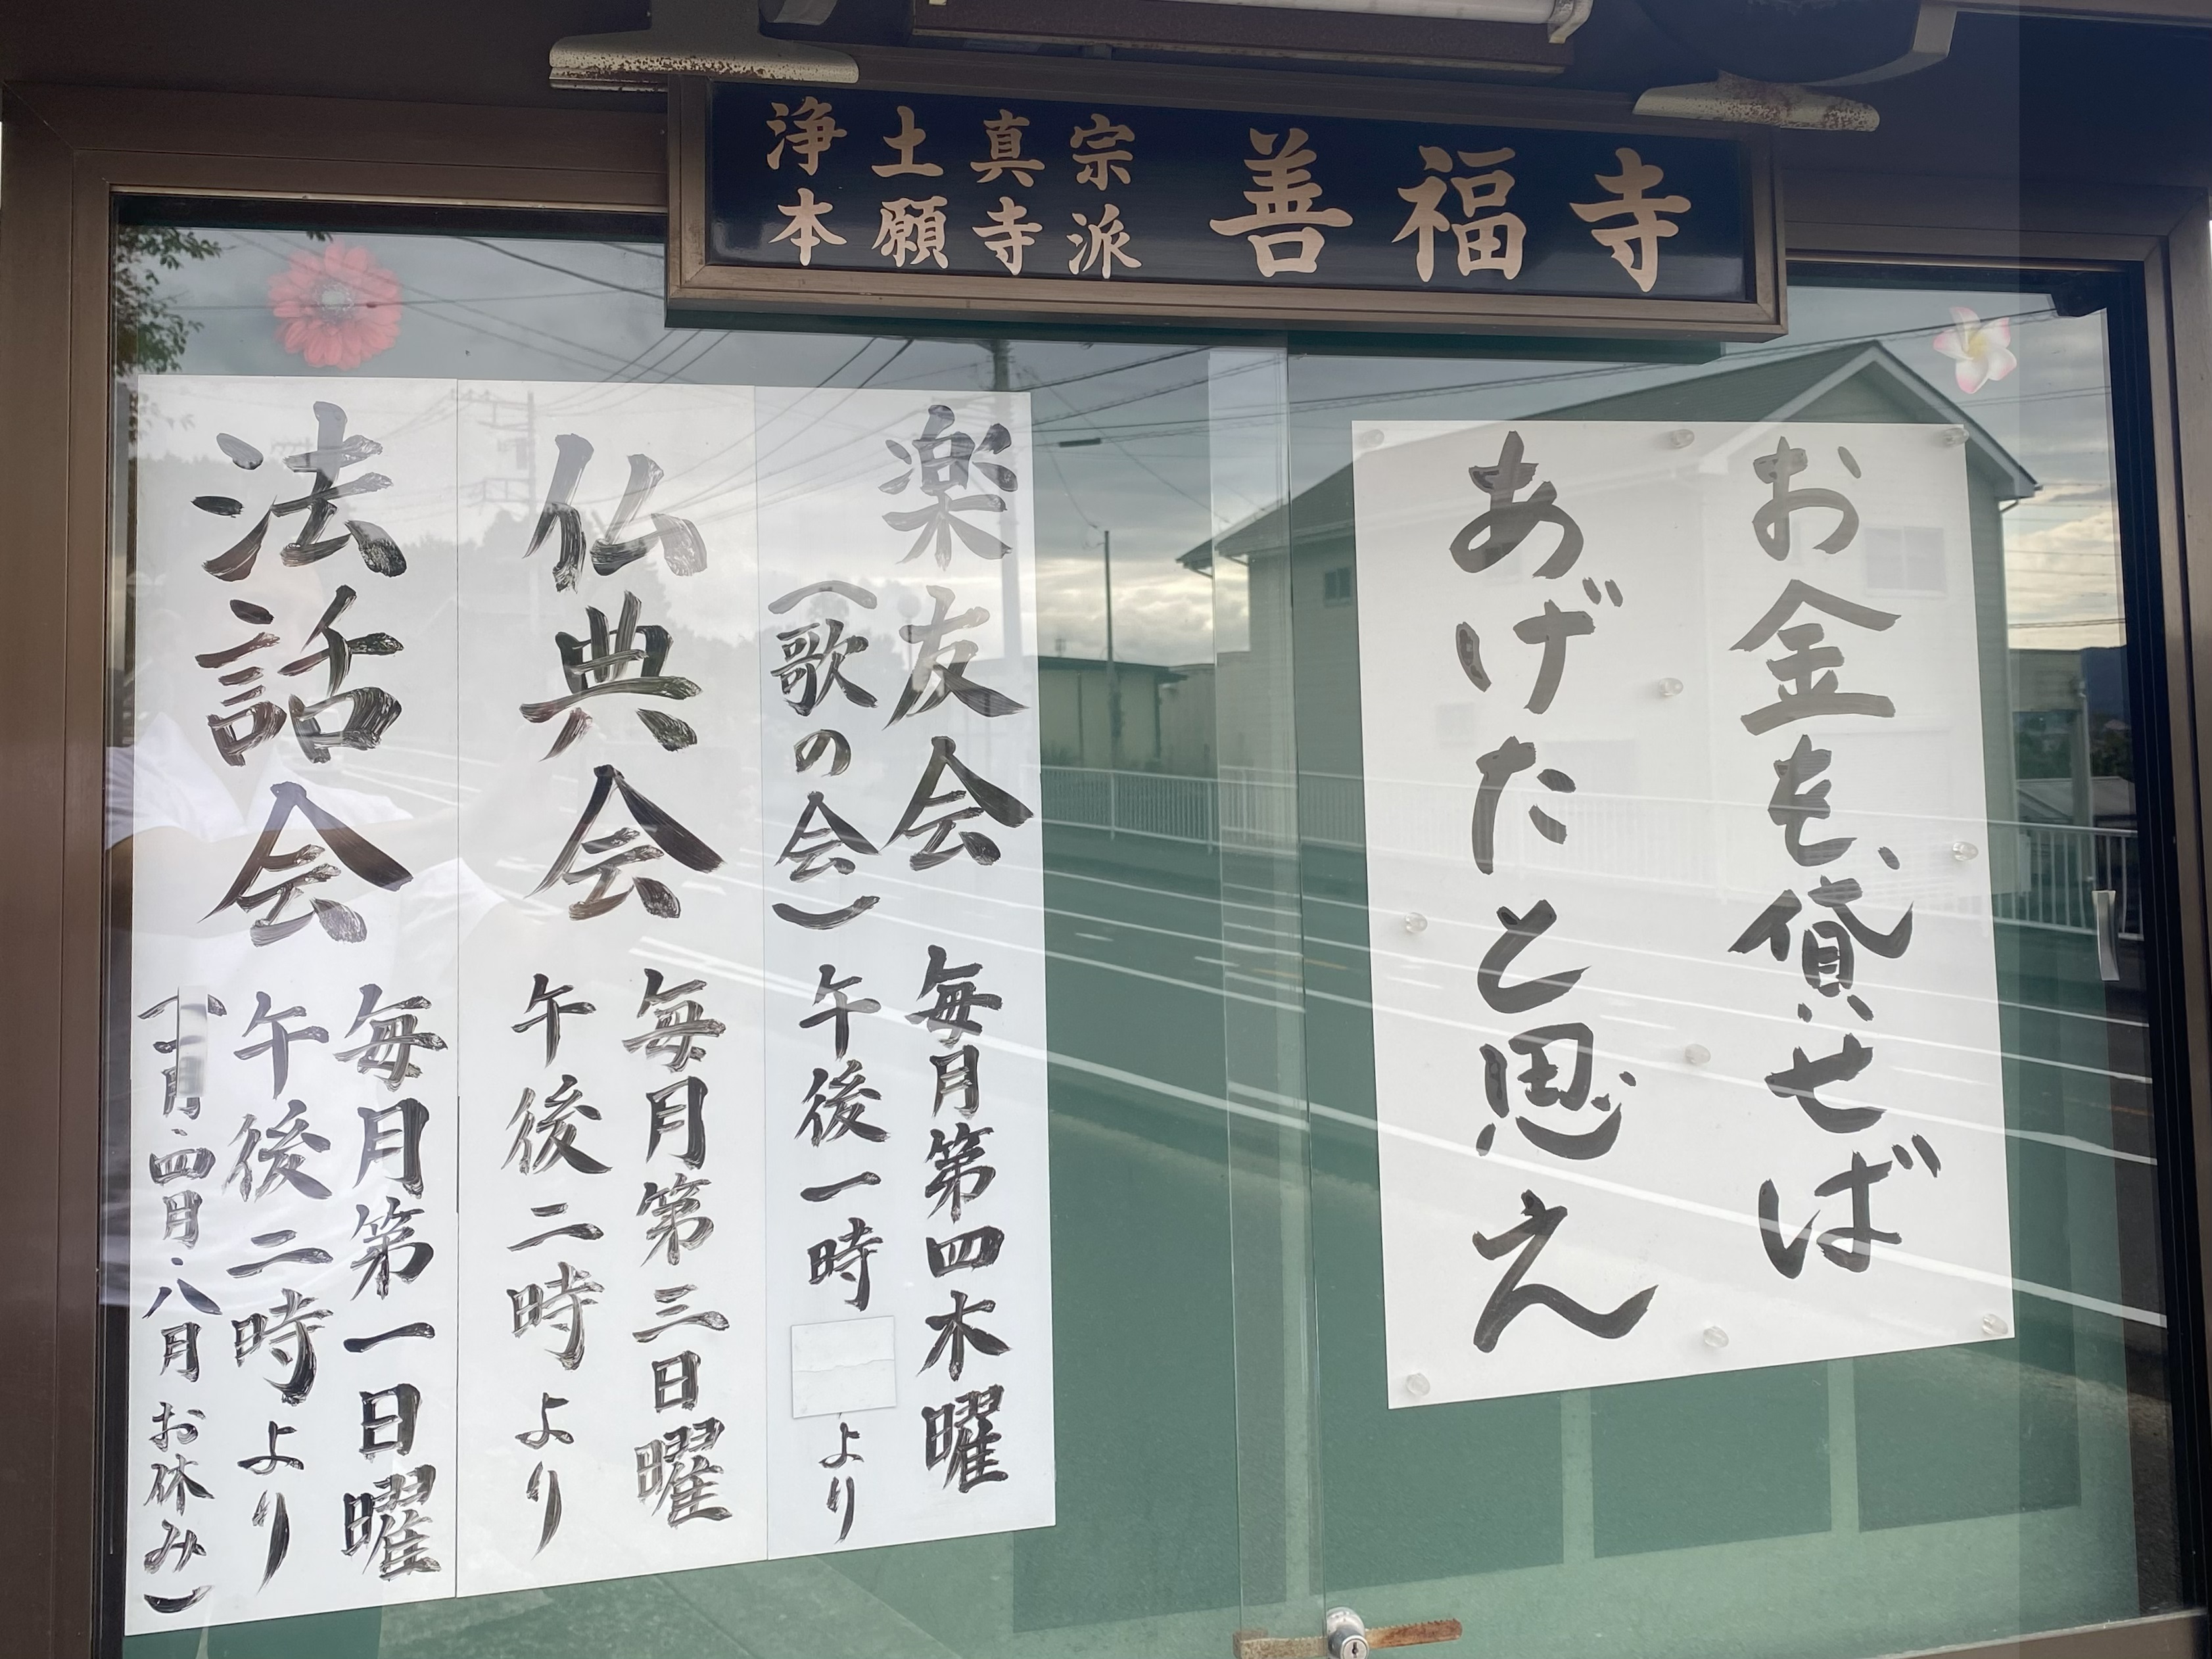 浄土真宗
本願寺派
善福寺
お金を貸せば
あげたと思え
楽友会
(歌の会)
毎月第四木曜
午後一時
より
仏典会
毎月第三日曜
午後二時より
法話会
毎月第一日曜
午後二時より
月・四月・八月お休み)